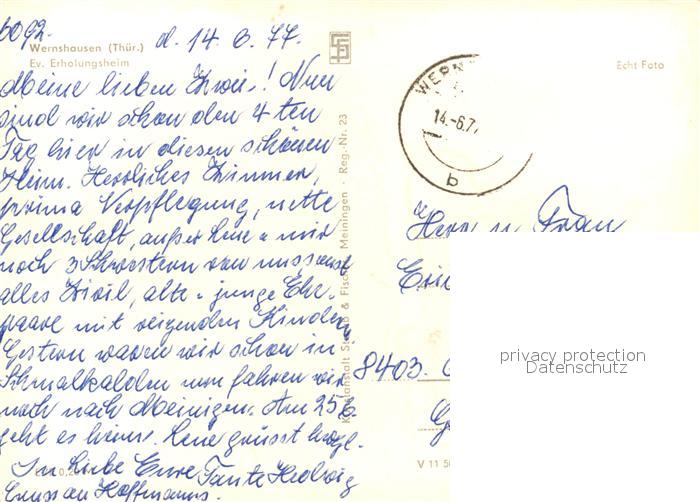 6092
Wernshausen (Thür.)
Ev. Erholungsheim
d. 14.6.77.
Meine lieben Zwei! Nun
sind wir schon den 4ten
Tag hier in diesen schönen
Heim. Herrliches Zimmer,
prima Verpflegung, nette
Gesellschaft, außer Lene u mir
noch 3 Schwestern von uns, sonst
alles Zivil, alte u. junge Ehe-
paare mit reizenden Kindern
Gestern waren wir schon in
Schmalkalden nun fahren wir
noch nach Meinigen. Am 25.6.
geht es heim. Lene grüsst herzl.
In Liebe Eure Tante Hedwig
Gruss an Hoffmanns.
Kunstanstalt Straub & Fischer Meiningen · Reg.-Nr. 23
Echt Foto
WERN
14.-6.77
b
Herrn u. Frau
8403.
V 11 50
privacy protection
Datenschutz